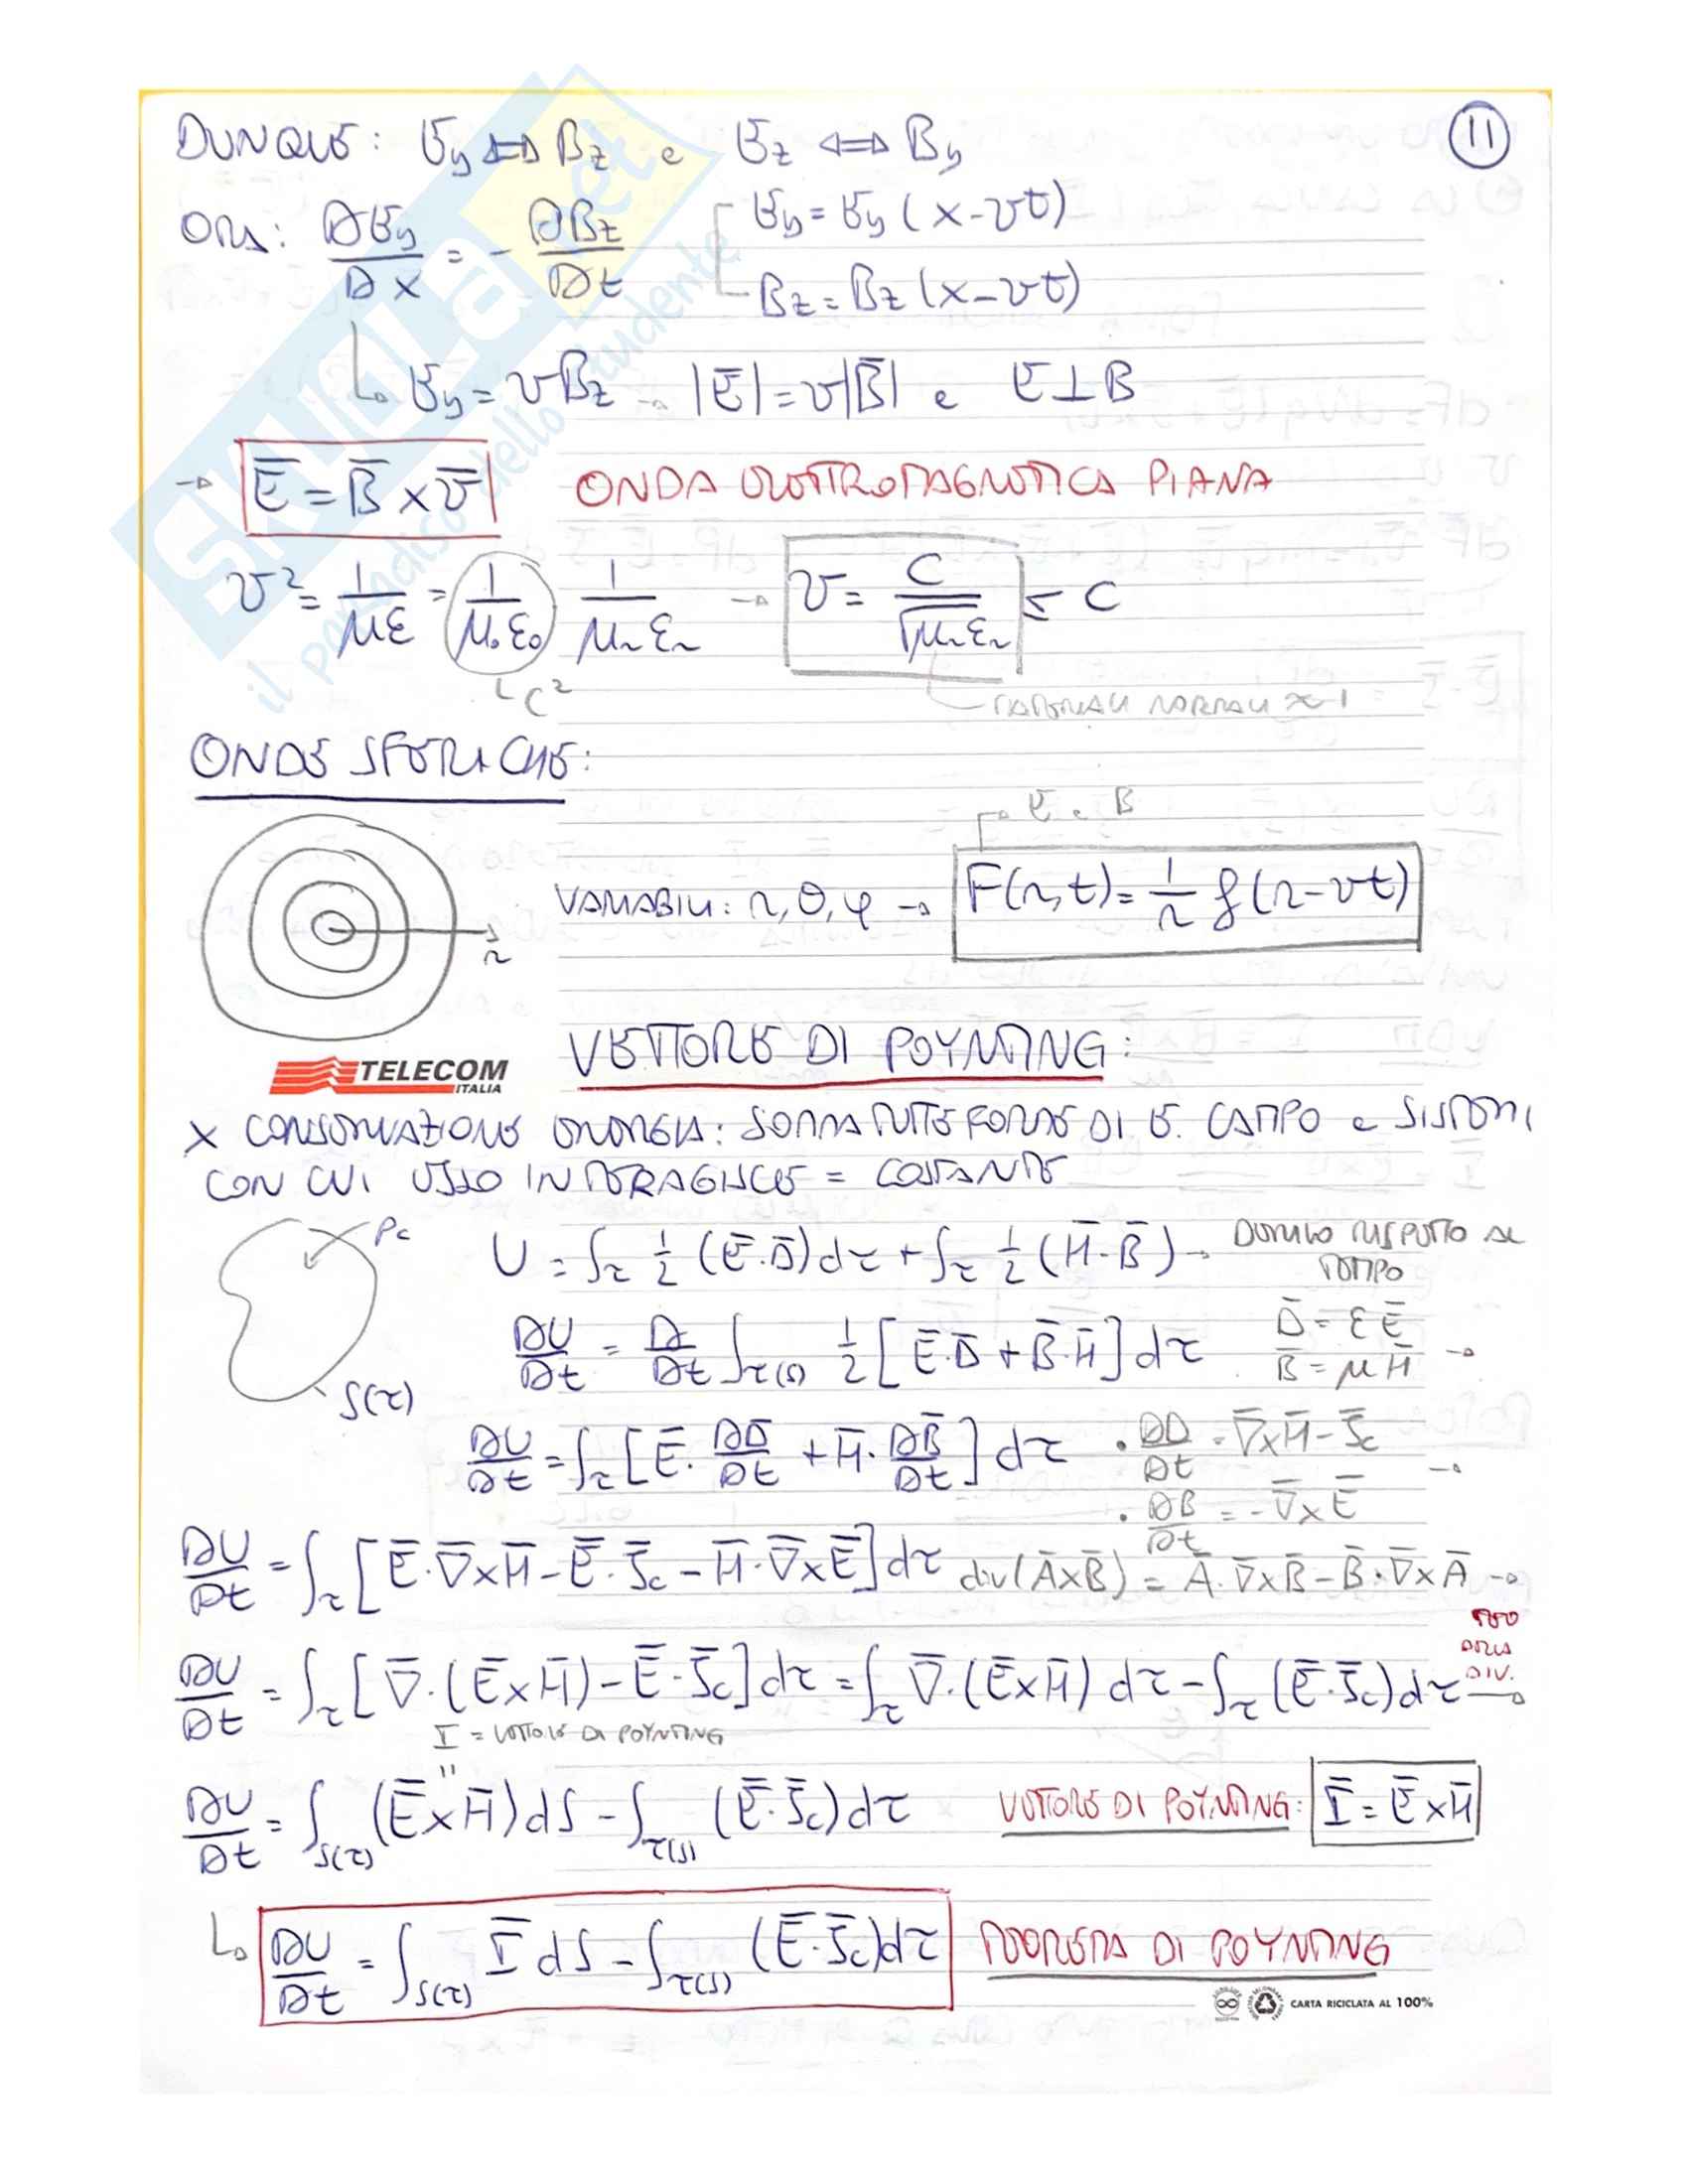 11
DUNQUE: Ey ⇔ Bz e Ez ⇔ By
ORA: ∂Ey/∂x = - ∂Bz/∂t Ey = Ey (x-vt)
Bz = Bz (x-vt)
Ey = vBz → |E̅| = v|B̅| e E⊥B
→ E̅ = B̅ × v̅ ONDA ELETTROMAGNETICA PIANA
v² = 1/με = 1/μ₀ε₀ 1/μrεr → v = c/√μrεr ≤ c
c²
MATERIALI NORMALI ≈ 1
ONDE SFERICHE:
E e B
VARIABILI: r, θ, φ → F(r,t) = 1/r f(r-vt)
r
TELECOM
ITALIA
VETTORE DI POYNTING:
X CONSERVAZIONE ENERGIA: SOMMA TUTTE FORME DI E. CAMPO e SISTEMI
CON CUI ESSO INTERAGISCE = COSTANTE
U = ∫τ 1/2 (E̅·D̅)dτ + ∫τ 1/2 (H̅·B̅) → DERIVO RISPETTO AL
TEMPO
∂U/∂t = ∂/∂t ∫τ(S) 1/2 [E̅·D̅ + B̅·H̅] dτ D̅ = εE̅
B̅ = μH̅ →
S(τ)
∂U/∂t = ∫τ [E̅· ∂D̅/∂t + H̅· ∂B̅/∂t] dτ · ∂D/∂t = ∇̅×H̅ - J̅c →
· ∂B/∂t = -∇̅×E̅
∂U/∂t = ∫τ [E̅·∇̅×H̅ - E̅·J̅c - H̅·∇̅×E̅] dτ div(A̅×B̅) = A̅·∇̅×B̅ - B̅·∇̅×A̅ →
TEO
DELLA
DIV.
∂U/∂t = ∫τ [∇̅·(E̅×H̅) - E̅·J̅c] dτ = ∫τ ∇̅·(E̅×H̅) dτ - ∫τ (E̅·J̅c) dτ →
I = VETTORE DI POYNTING
∂U/∂t = ∫S(τ) (E̅×H̅) dS - ∫τ(S) (E̅·J̅c) dτ VETTORE DI POYNTING: I̅ = E̅×H̅
∂U/∂t = ∫S(τ) I̅ dS - ∫τ(S) (E̅·J̅c) dτ TEOREMA DI POYNTING
CARTA RICICLATA AL 100%
SKUOLA.net
il paradiso dello studente